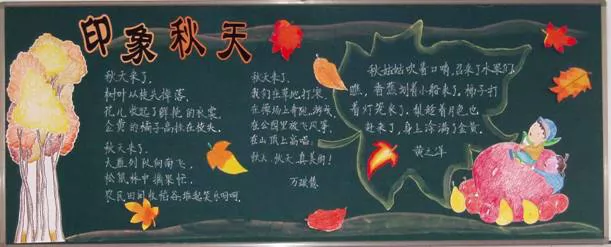 印象秋天
秋天来了,
树叶从枝头掉落,
花儿收起了鲜艳的衣裳,
金黄的橘子高挂在枝头。
秋天来了,
大雁列队向南飞,
松鼠林中摘果忙,
农民田间收稻谷堆起笑呵呵。
秋天来了,
我们在草地打滚,
在操场上奔跑、游戏,
在公园里放飞风筝,
在山顶上高唱:
秋天,秋天,真美丽!
秋姑姑吹着口哨,召来了水果们
瞧,香蕉划着小船来了,柿子打
着灯笼来了,梨趁着月色也
赶来了,身上涂满了金黄。